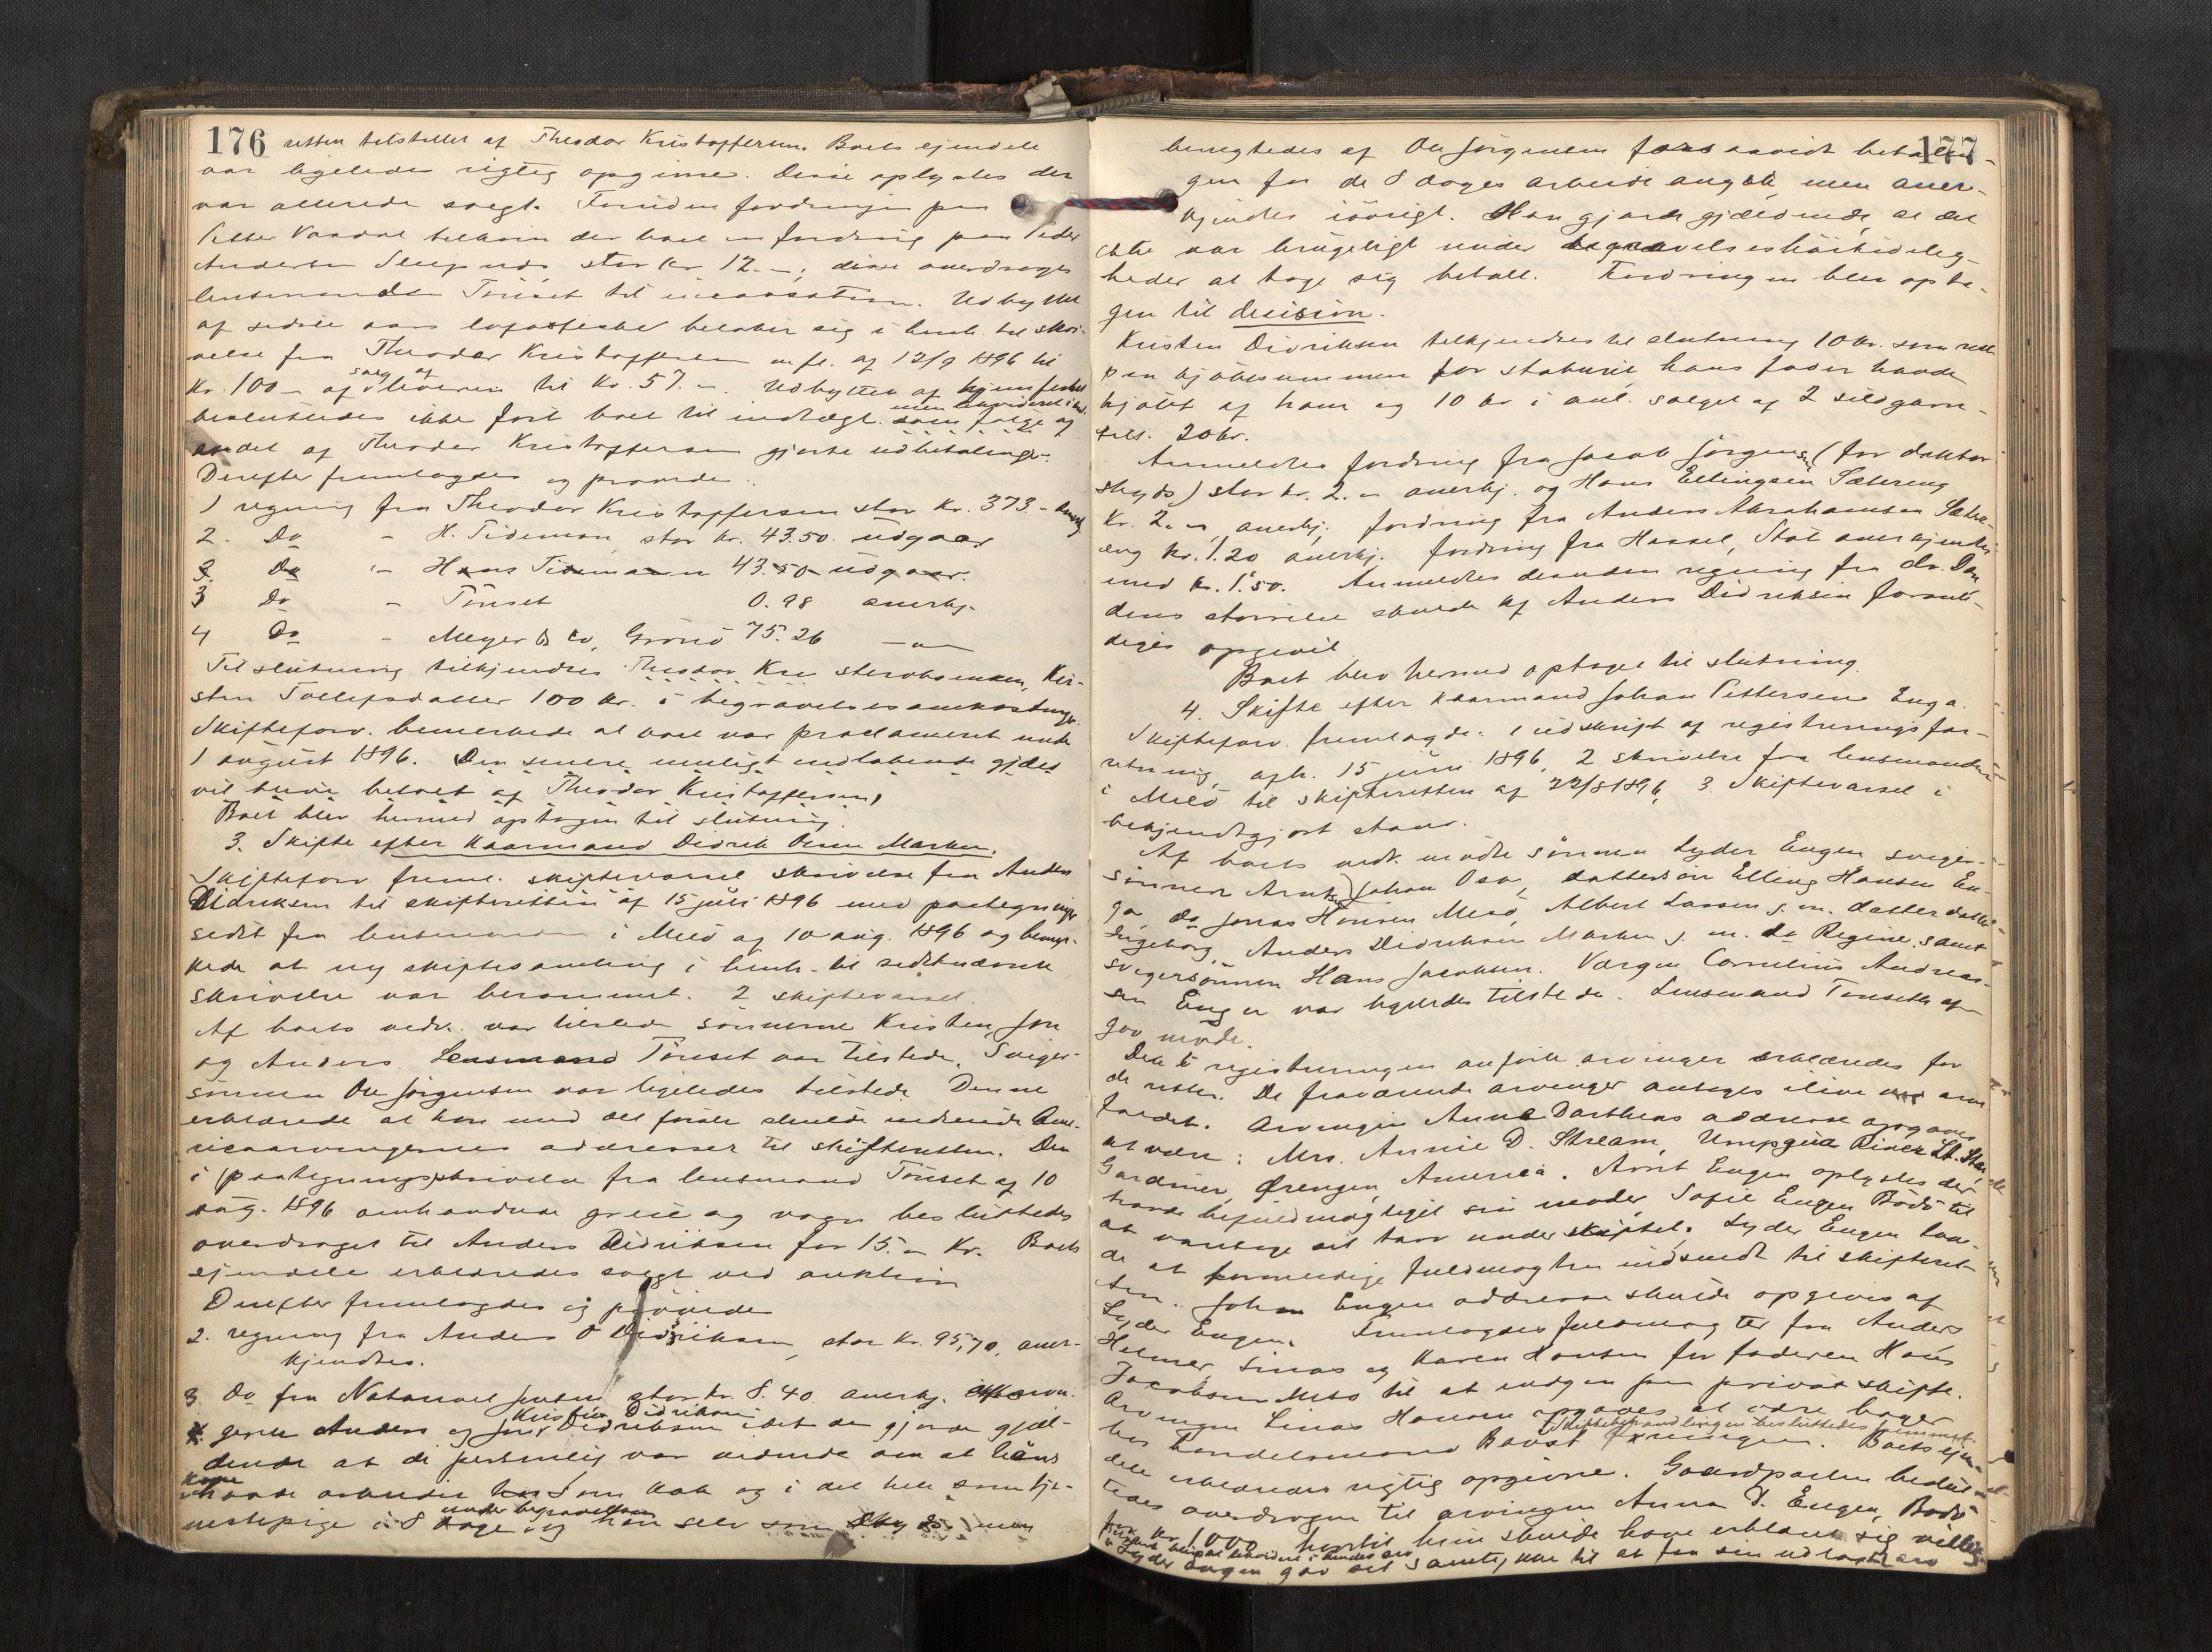 176 retten tilstillet af Theodor Kristoffersen. Boets ejendele
var ligeledes rigtig opgivne. Disse oplystes der
var allerede solgt. Foruden fordringen paa
Petter Vaadal tilkom der boet en fordring paa Peder
Andersen Sleipnes, stor kr. 12.–; disse overdroges
lensmanden Tönset til incassation. Udbyttet
af sidste aars lofotfiske beløber sig i henh. til skri-
velse fra Theodor Kristoffersen m. fl. af 12/9 1896 til
Kr. 100 – af salg af til Kr. 57. – Udbyttet af hjemfisket
besluttedes ikke fört boet til indtægt
af Theodor Kristoffersen gjorte udbetalinger.
Derefter fremlagdes og prövedes:
1 regning fra Theodor Kristoffersen stor Kr. 373. – anerkj.
2. Do – H. Tidemann, stor kr. 43.50. udgaar
3. Do – Hans Tidemann 43.50 udgaar.
3 Do – Tönset 0.98 anerkj.
4 Do – Meyer & Co, Grönö 75.26 – " –
Til slutning tilkjendtes Theodor Kri sterboenken, Kir-
sten Tollefsdatter 100 kr. i begravelsesomkostninger.
Skifteforv. bemerkede at boet var proclameret under
1 august 1896. Den senere muligt indlöbende gjæld
vil blive betalt af Theodor Kristoffersen,
Boet blev hermed optagen til slutning.
3. Skifte efter kaarmand Didrik Olsen Marken.
Skifteforv. freml. skiftevarsel skrivelse fra Anders
Didriksen til skifteretten af 15 juli 1896 med paategninger
sidst fra lensmanden i Melö af 10 aug. 1896 og bemer-
kede at ny skiftesamling i henh. til sidstnævnte
skrivelse var berammet. 2 skiftevarsel.
Af boets vedk. var tilstede sönnerne Kristen, Jon
og Anders. Lensmand Tönset var tilstede. Sviger-
sönnen Ole Jörgensen var ligeledes tilstede. Denne
erklærede at han med det förste skulde indsende Ame-
ricaarvingernes adresser til skifteretten. Den
i (paategnings)skrivelse fra lensmand Tönset af 10
aug. 1896 omhandlede greie og vogn besluttedes
overdraget til Anders Didriksen for 15. – Kr. Boets
ejendele erklæredes solgt ved auktion
Derefter fremlagdes og prövedes
2. regning fra Anders O Didriksen, stor Kr. 95,70, aner-
kjendtes.
3 Do fra Natanael Jensen stor kr. 8.40 anerkj. Af arvin-
gerne Anders og Jon Kristen Didriksen Didriksen idet de gjorde gjæl-
dende at de personlig var vidende om at hans
kone havde arbeidet som kok og i det hele som tje-
nestepige i 8 dage under begravelsen og han selv som men
177
benegtedes af Ole Jörgensen forsaavidt betalin-
gen for de 8 dages arbeide angik, men aner-
kjendtes iövrigt. Han gjorde gjældende, at det
ikke var brugeligt under begravelseshöitidelig-
heder at tage sig betalt. Fordringen blev opta-
gen til decision.
Kristen Didriksen tilkjendtes til slutning 10 kr. som rest
paa kjöbesummen for staburet hans fader havde
kjöbt af ham og 10 kr i anl. salget af 2 sildgarn –
tils. 20 kr.
Anmeldtes fordring fra Jacob Jörgensen (for doktor
skyds) stor kr. 2. – anerkj. og Hans Ellingsen Sætereng
Kr. 2. – anerkj. fordring fra Anders Abrahamsen Sætr-
eng kr. 1.20 anerkj. fordring fra Hassel, Stöt anerkjendtes
med kr. 1.50. Anmeldtes desuden regning fra dr. Dan
dens störrelse skulde af Anders Didriksen foranle-
diges opgivet
Boet blev hermed optaget til slutning.
4. Skifte efter kaarmand Johan Pettersen Enga.
Skifteforv. fremlagde. 1 udskrift af registreringsfor-
retning, afh. 15 juni 1896, 2 skrivelse fra lensmanden
i Melö til skifteretten af 22/8 1896, 3. Skiftevarsel i
bekjendtgjort stand.
Af boets vedk. mödte sönnen Lyder Engen sviger-
sönnen Arnt Johan Osa, dattersön Elling Hansen En-
ga, do Jonas Hansen Mesö, Albert Larsen g. m. datterdatter
Ingeborg, Anders Didriksen Marken g. m. do Regine, samt
svigersönnen Hans Jacobsen. Værgen Cornelius Andreas-
sen Enga var ligeledes tilstede. Lensmand Tönseth af-
gav möde.
De i registreringen anförte arvinger erklæredes for
de rette. De fraværende arvinger antages ilive ved arve
faldet. Arvingen Anna Dartheas addresse opgaves
at være: Mrs. Annie D. Stream, Umpqua River Lt. Sta.
Gardiner, Orengon America. Arnt Engen oplystes der
havde befuldmægtiget sin moder, Sofie Engen Bodö til
at varetage sit tarv under skiftet. Lyder Engen lov-
de at formentlige fuldmagten indsendt til skifteret-
ten. Johan Engens addresse skulde opgives af
Lyder Engen. Fremlagdes fuldmagter fra Anders
Helmer, Linas og Karen Hansen for faderen Hans
Jacobsen Mesö til at indgaa paa privat skifte.
Arvingen Linas Hansen opgaves at være bager
hos handelsmand Skiftebehandlingen besluttedes fremmet. Boets ejen-
dele erklæredes rigtig opgivne. Gaardparten beslut-
tedes overdragen til arvingen Anna D. Engen, Bodö
for kr. 1000 hvortil hun skulde have erklæret sig villig
Lyder Engen gav sit samtykke til at faa sin udlagte arv